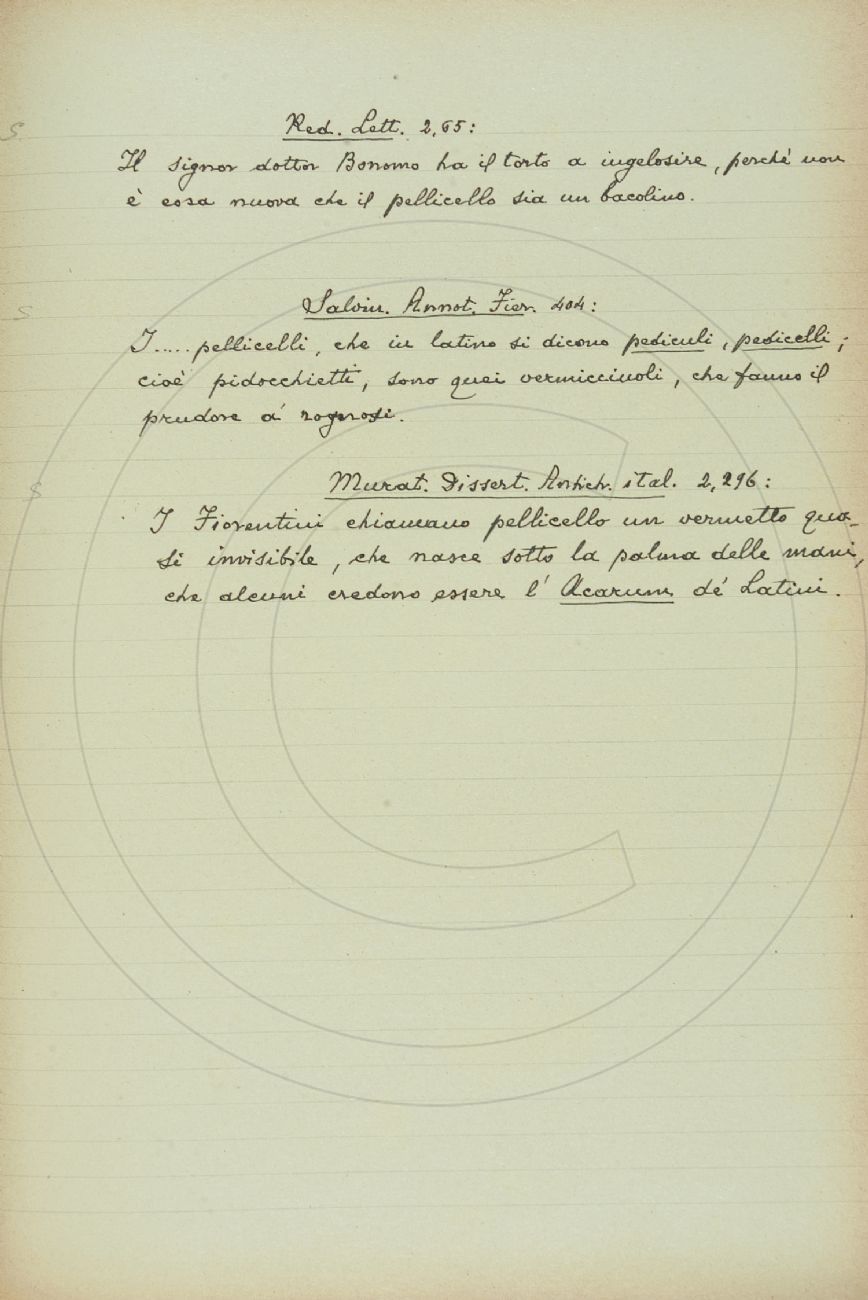 Red. Lett. 2,65:
S
Il signor dottor Bonomo ha il torto a ingelosire, perchè non
è cosa nuova che il pellicello sia un bacolino.
Salvin. Annot. Fier. 404:
S
I..... pellicelli, che in latino si dicono pediculi, pedicelli;
cioè pidocchietti, sono quei vermicciuoli, che fanno il
prudore a' rognosi.
Murat. Dissert. Antich. ital. 2,296:
S
I Fiorentini chiamano pellicello un vermetto qua-
si invisibile, che nasce sotto la palma delle mani,
che alcuni credono essere l' Acarum de' Latini.